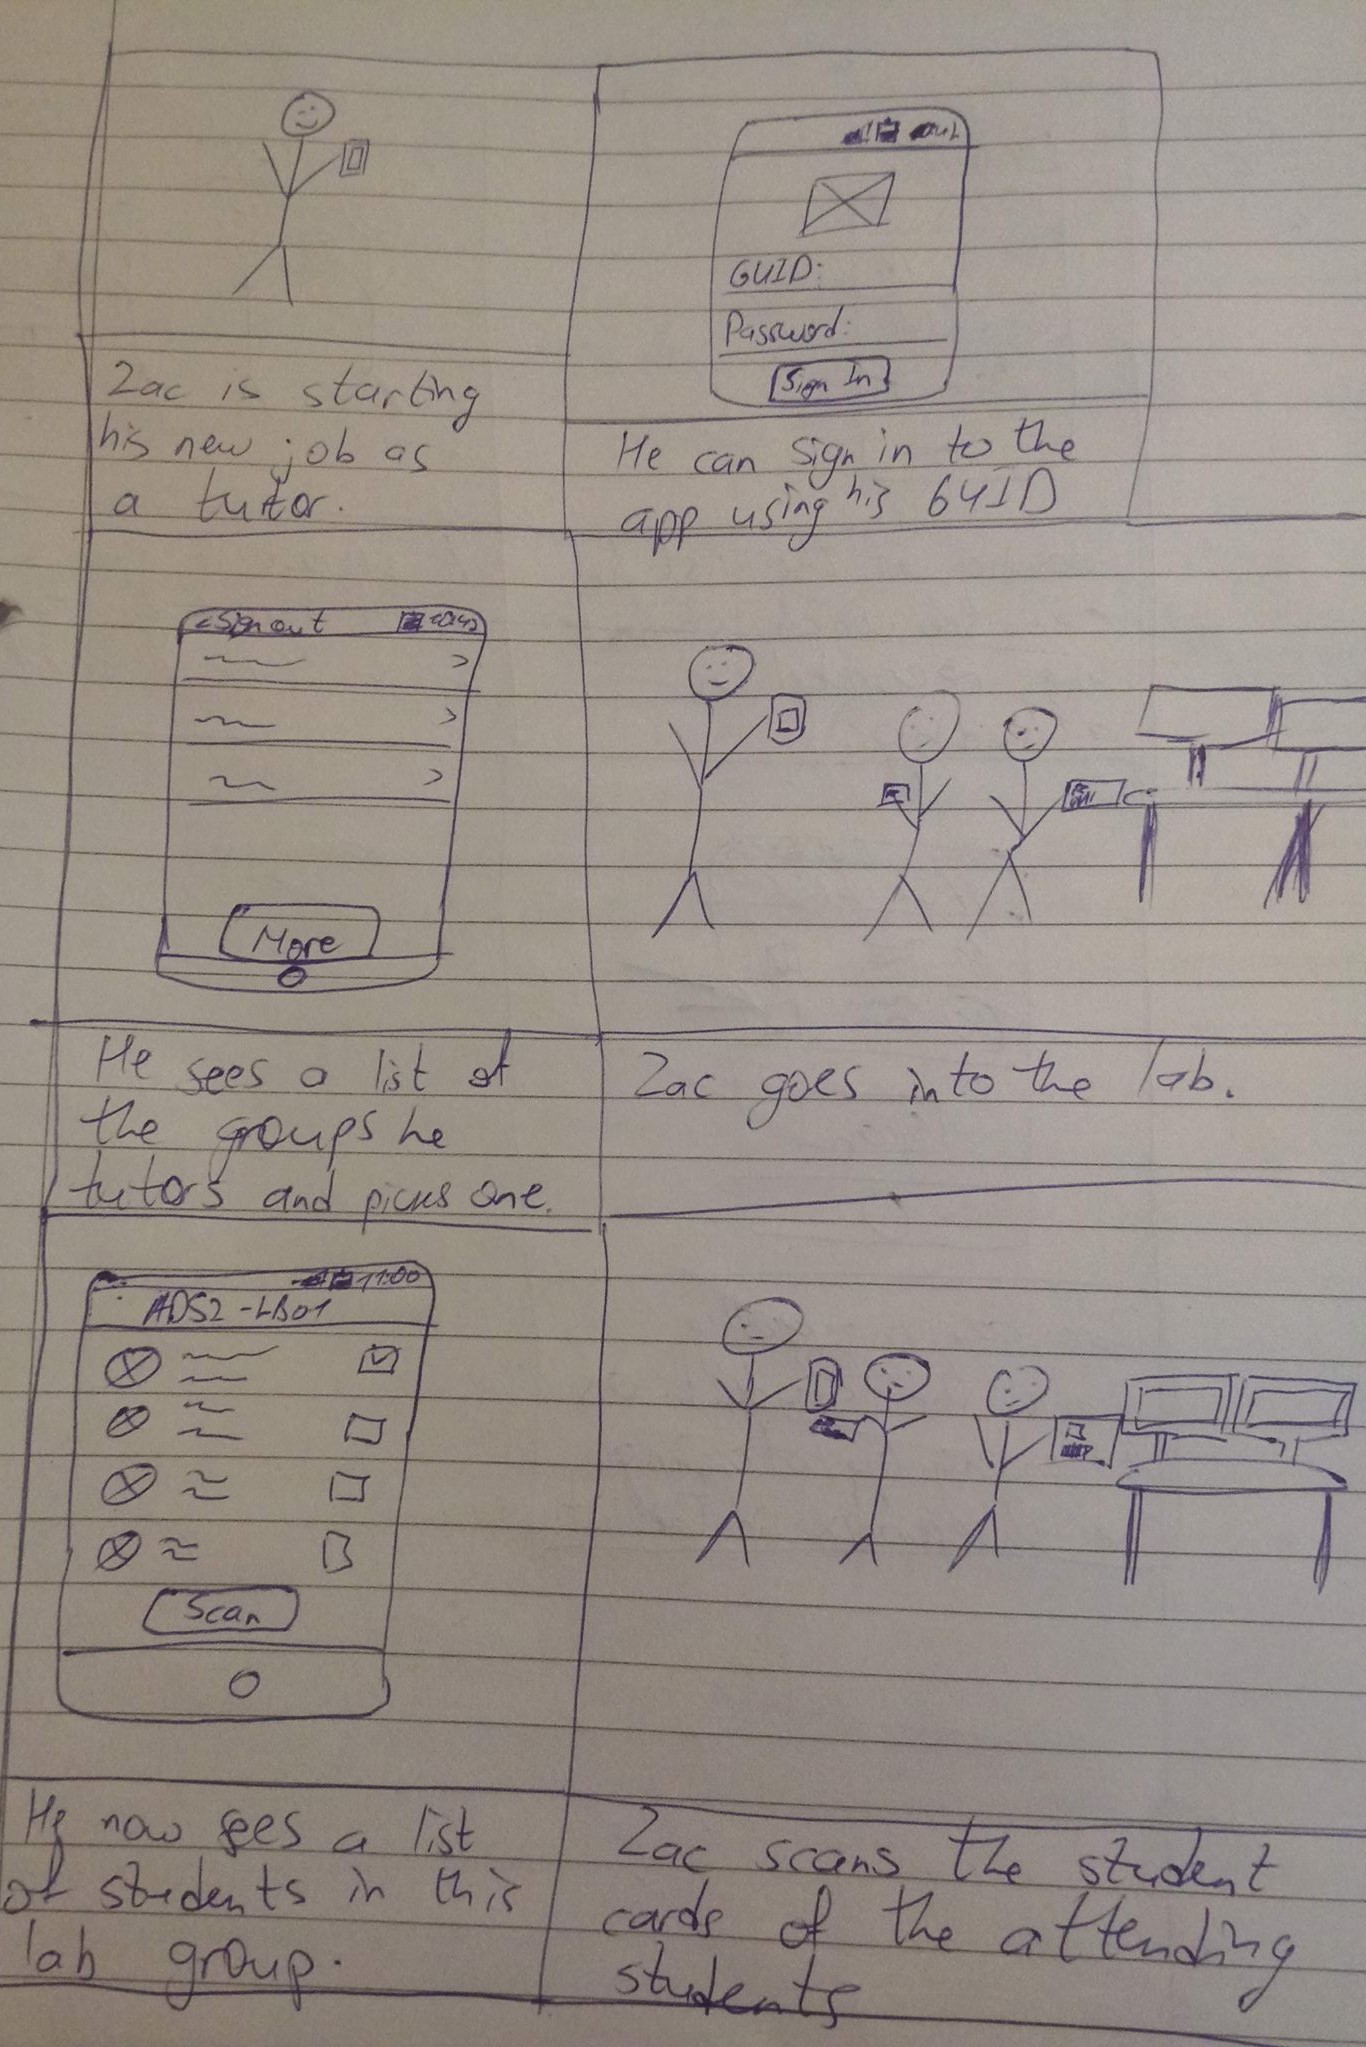 GUID:
Password:
Sign In
Zac is starting
his new job as
a tutor.
He can sign in to the
app using his GUID
<Sign out
More
He sees a list of
the groups he
tutors and picks one.
Zac goes into the lab.
11:00
ADS2-LB01
Scan
He now sees a list
of students in this
lab group.
Zac scans the student
cards of the attending
students